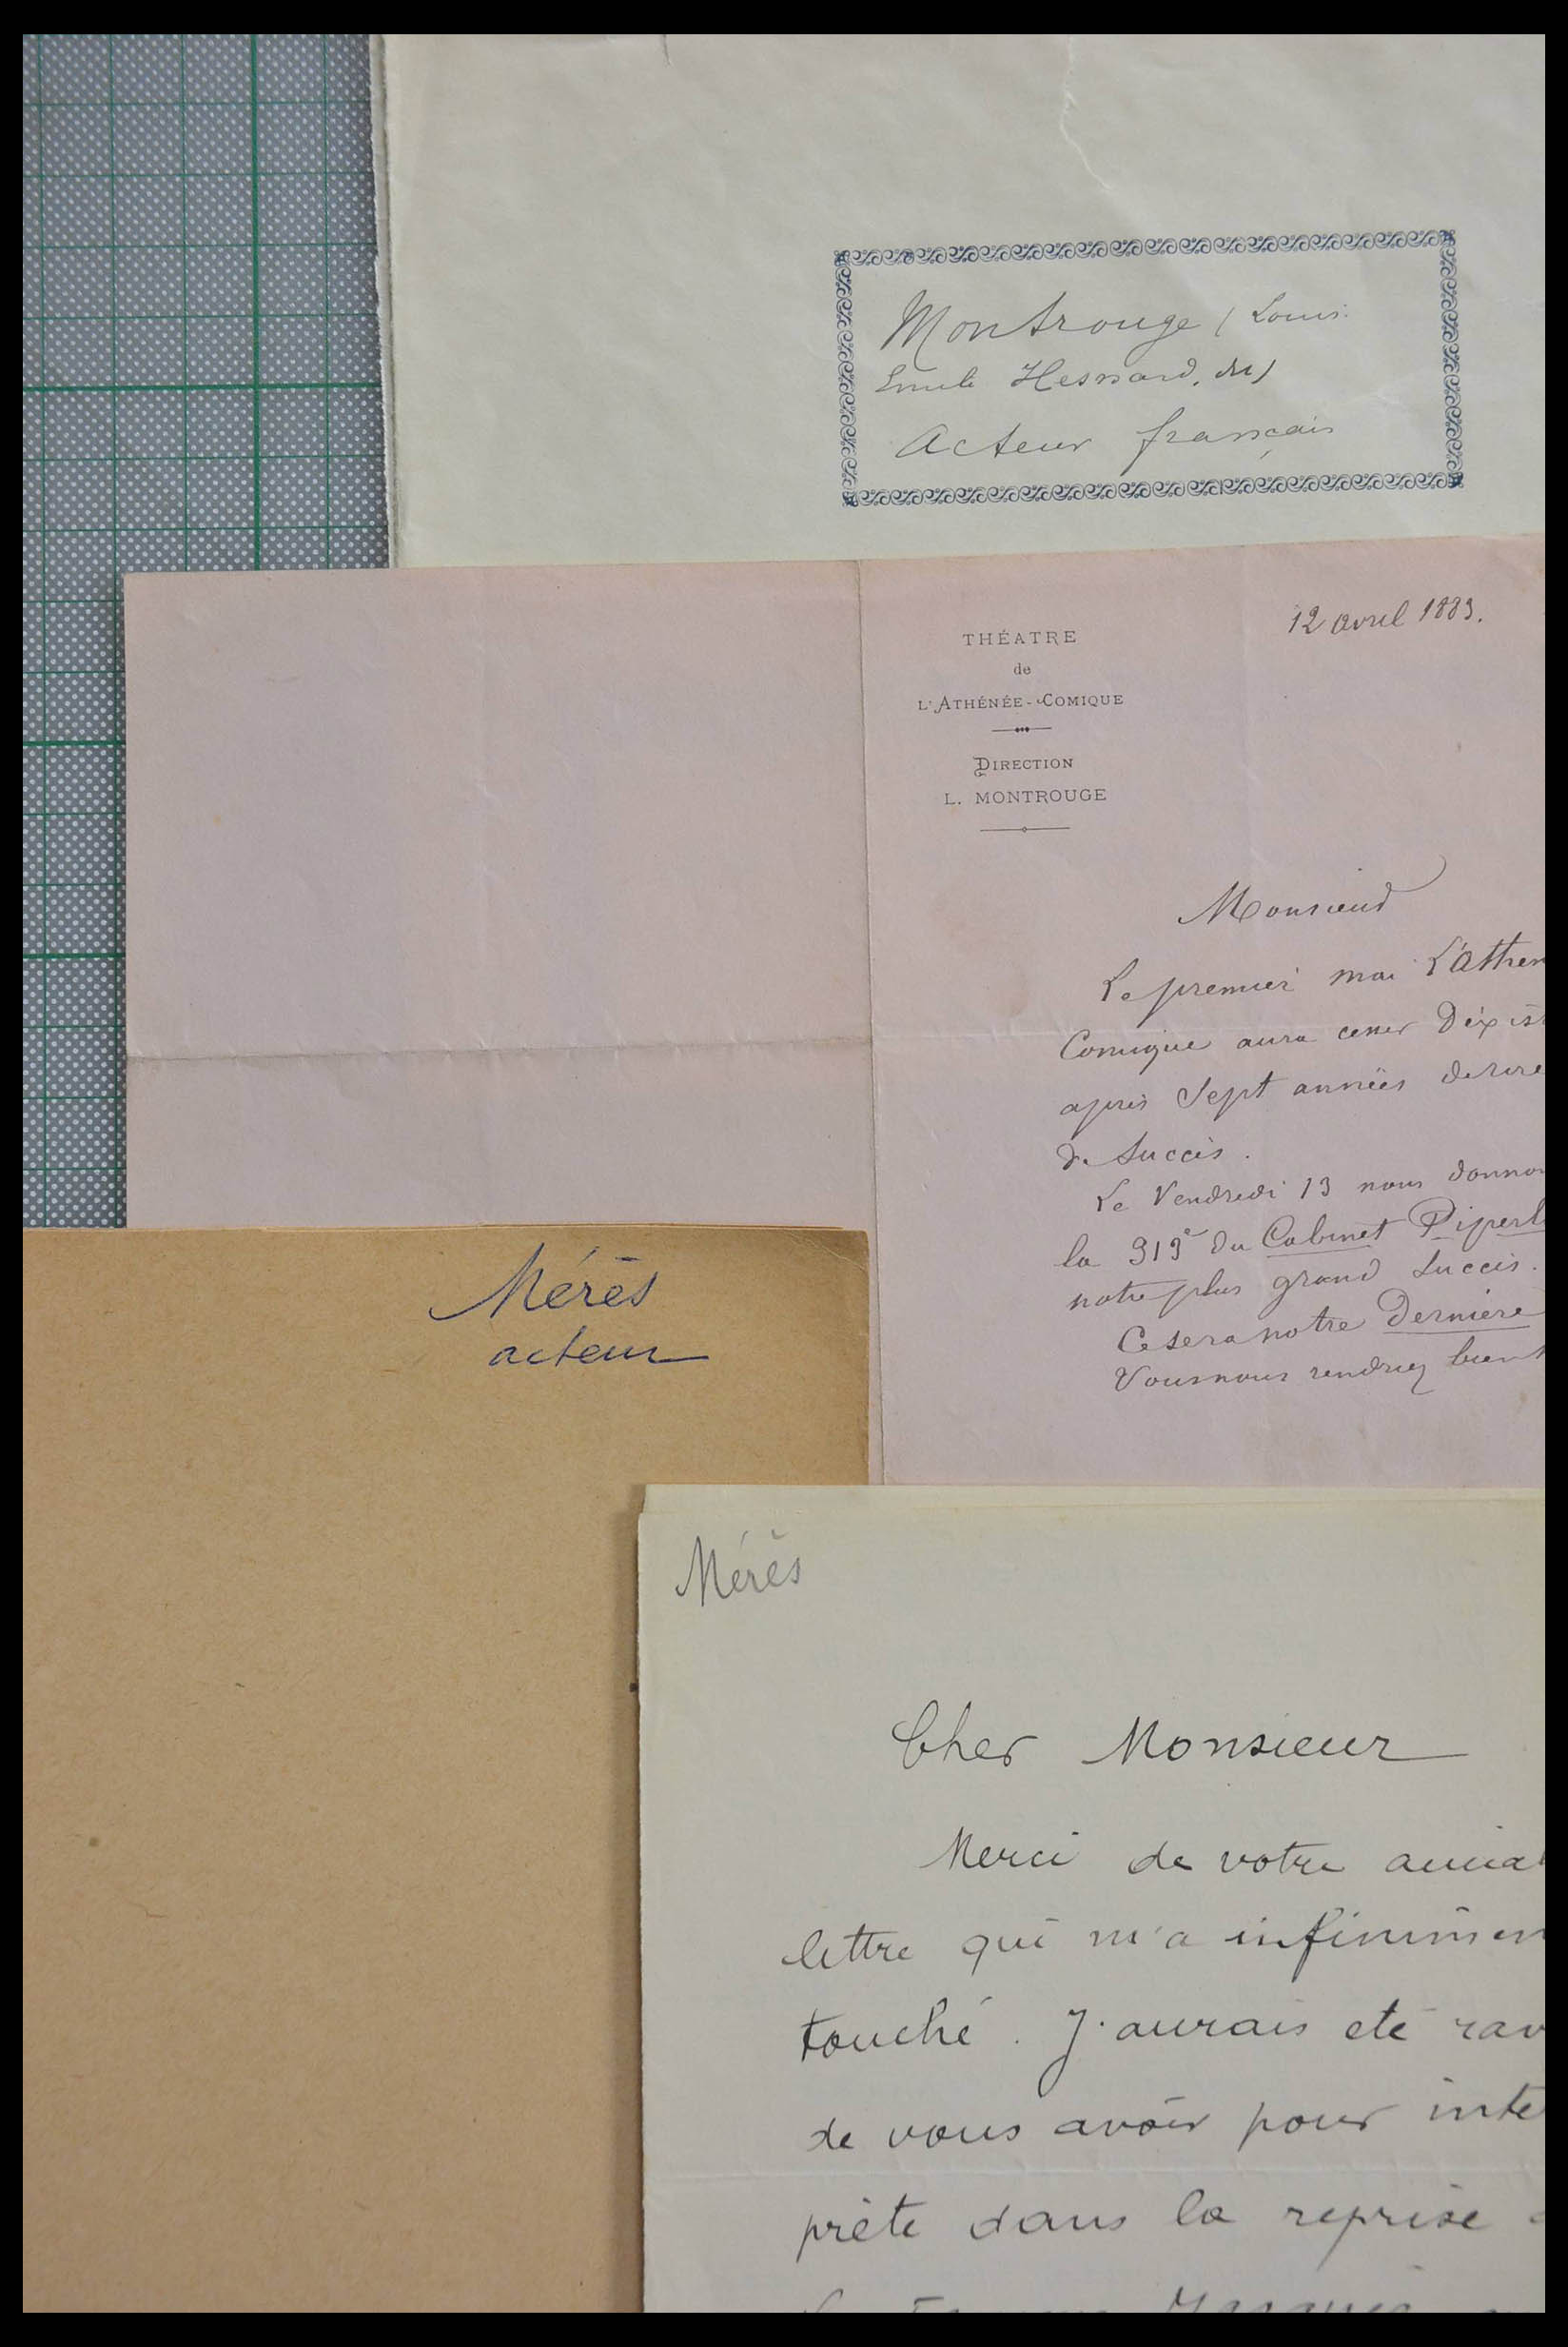 Montrouge (Louis
Emile Hesnard, dit)
Acteur français
12 avril 1883.
THÉATRE
de
L'ATHÉNÉE-COMIQUE
DIRECTION
L. MONTROUGE
Monsieur
Le premier mai L'Athen
Comique aura cesser d'exis
après Sept années de rire
de Succès.
Le Vendredi 13 nous donno
la 313e du Cabinet Piperl
notre plus grand Succès.
Ce sera notre Dernière
Vous nous rendriez bien
Mérès
acteur
Mérès
Cher Monsieur
Merci de votre aimab
lettre qui m'a infinimen
touché. J'aurais eté rav
de vous avoir pour inte
prète dans la reprise